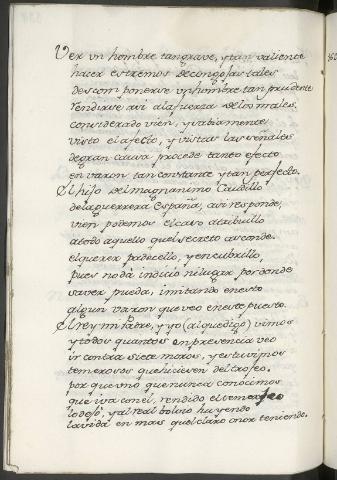 Ver vn hombre tan graue, y tan valiente
hacer estremos de congojas tales
descomponerse vn hombre tan prudente
rendirse asi ala fuerza delos males.
considerado vien, y sabiamente
visto el afecto, y vistas las señales
de gran causa procede tanto efecto
en varon tan constante y tan perfecto.
El hijo del magnanimo Caudillo
dela guerrera España, asi responde,
vien podemos el caso atribuillo
a todo aquello quel secreto asconde.
el querer padecello, y encubrillo,
pues no dá indicio ni lugar por donde
saver pueda, imitando en esto
algun varon que veo en este puesto.
El Rey mi Padre, y yo (al que digo) vimos
y todos quantos en presencia veo
ir contra siete moros, y estuvimos
temerosos que hiciesen del trofeo.
porque vno que nunca conocimos
que iva con el, rendido el
lo dejó, y al real bolvio huyendo
la vida en mas quel claro onor teniendo.